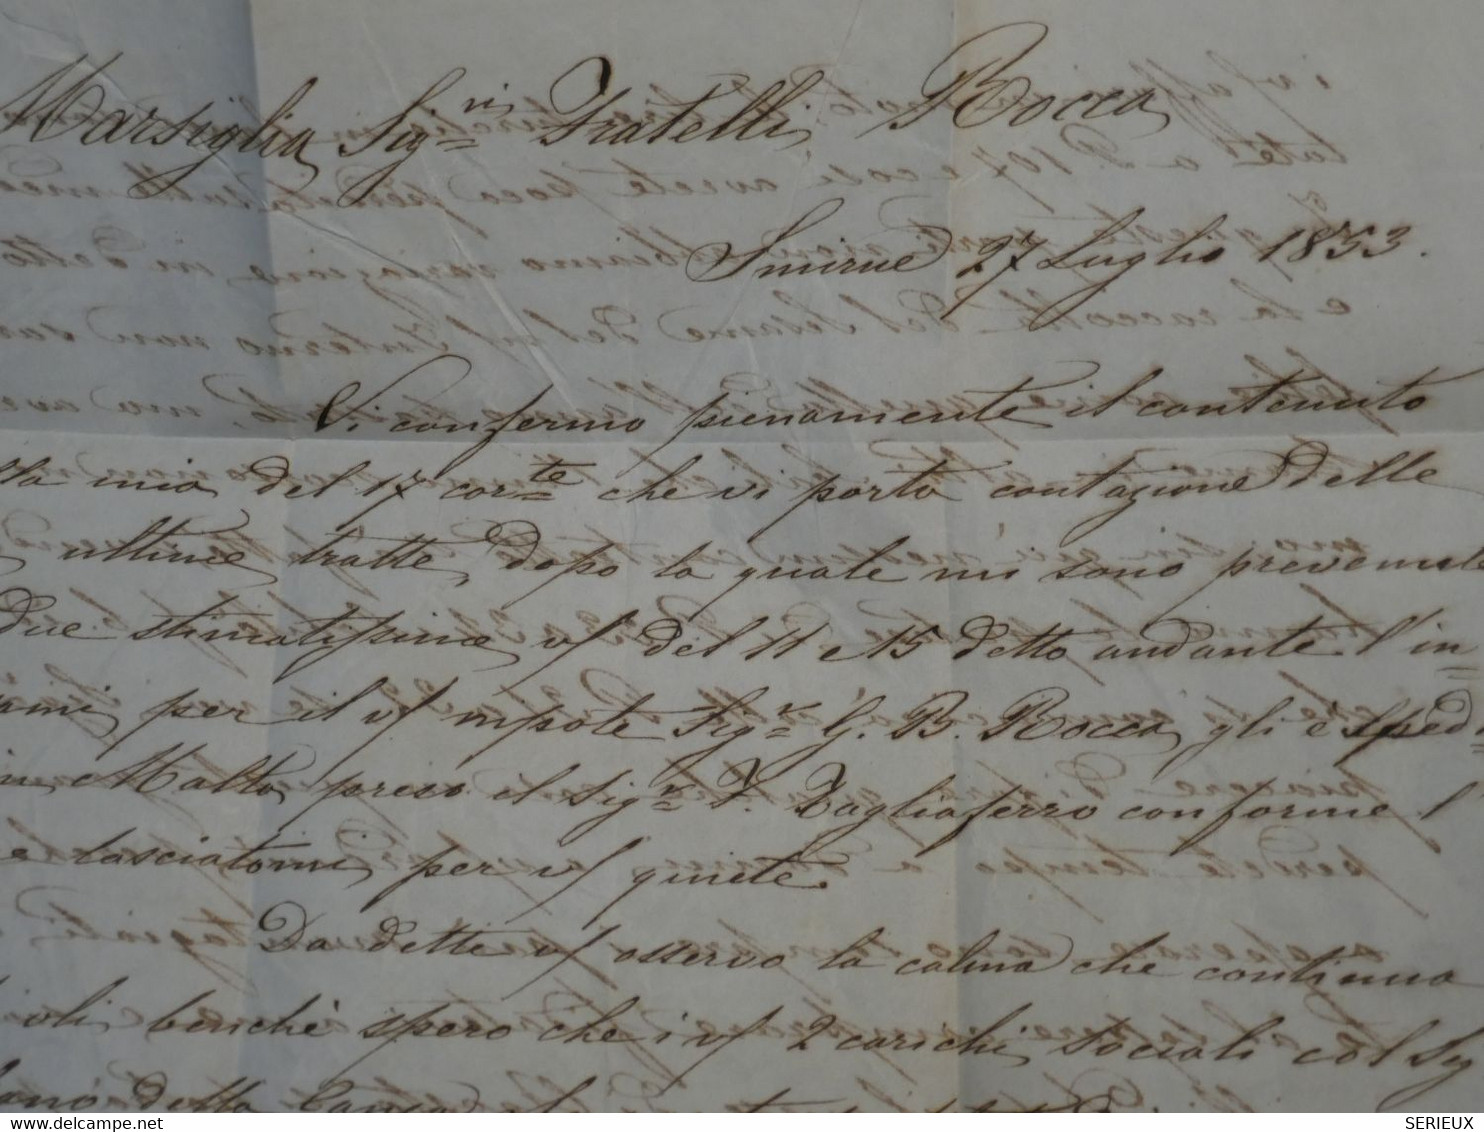 Marsiglia Sig.ri Fratelli Rocca
Smirne 27 Luglio 1853.
Vi confermo pienamente il contenuto
lla mia del 17 corte che vi porta contazione delle
ultime tratte, dopo la quale mi sono prevenute
due stimatissime v/ del 11 e 15 detto andante l'in=
per il v/ nipote Sig.r G. B. Rocca, gli è sped=
in Malta presso il Sig.r F. Tagliaferro conforme l'
e lasciatomi per v/ quiete.
Da dette v/ osservo la calma che continua
oli, benchè spero che i v/ 2 carichi sociali col Sig
SERIEUX
delcampe.net